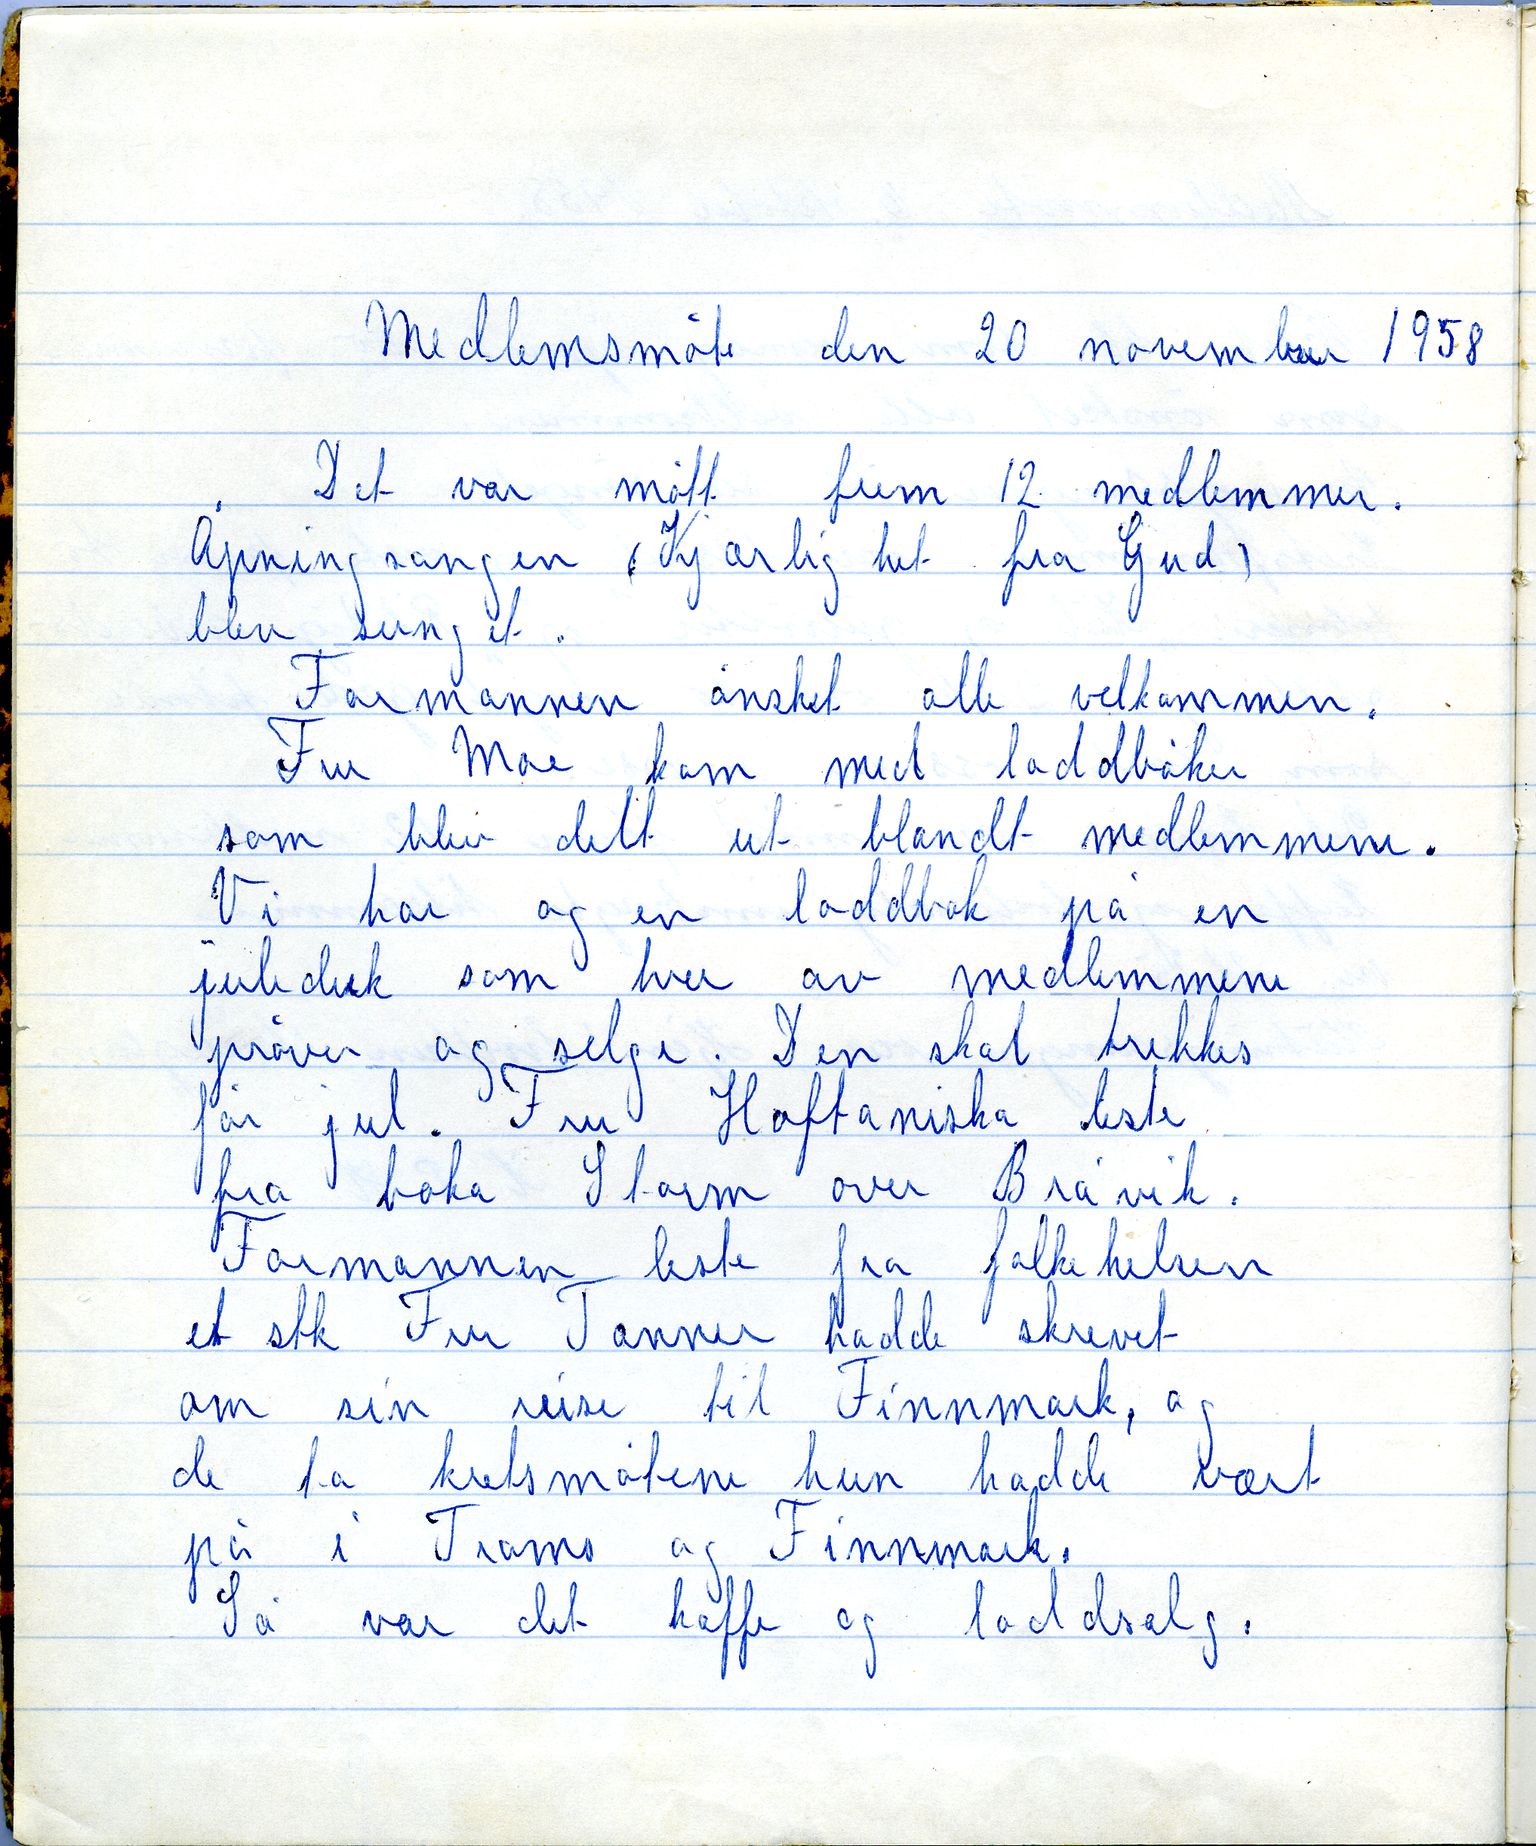 Medlemsmöte den 20 november 1958
Det var mött frem 12 medlemmer.
Åpningsangen (Kjærlighet fra Gud)
blev sunget.
Formannen önsket alle velkommen.
Fru Moe kom med loddböker
som blev delt ut blandt medlemmene.
Vi har og en loddbok på en
juleduk som hver av medlemmene
pröver og selge. Den skal trekkes
för jul. Fru Hoftaniska leste
fra boka Storm over Bråvik.
Formannen leste fra folkehelsen
et stk Fru Tanner hadde skrevet
om sin reise til Finnmark, og
de to kretsmötene hun hadde vært
på i Troms og Finnmark.
Så var det kaffe og loddsalg.